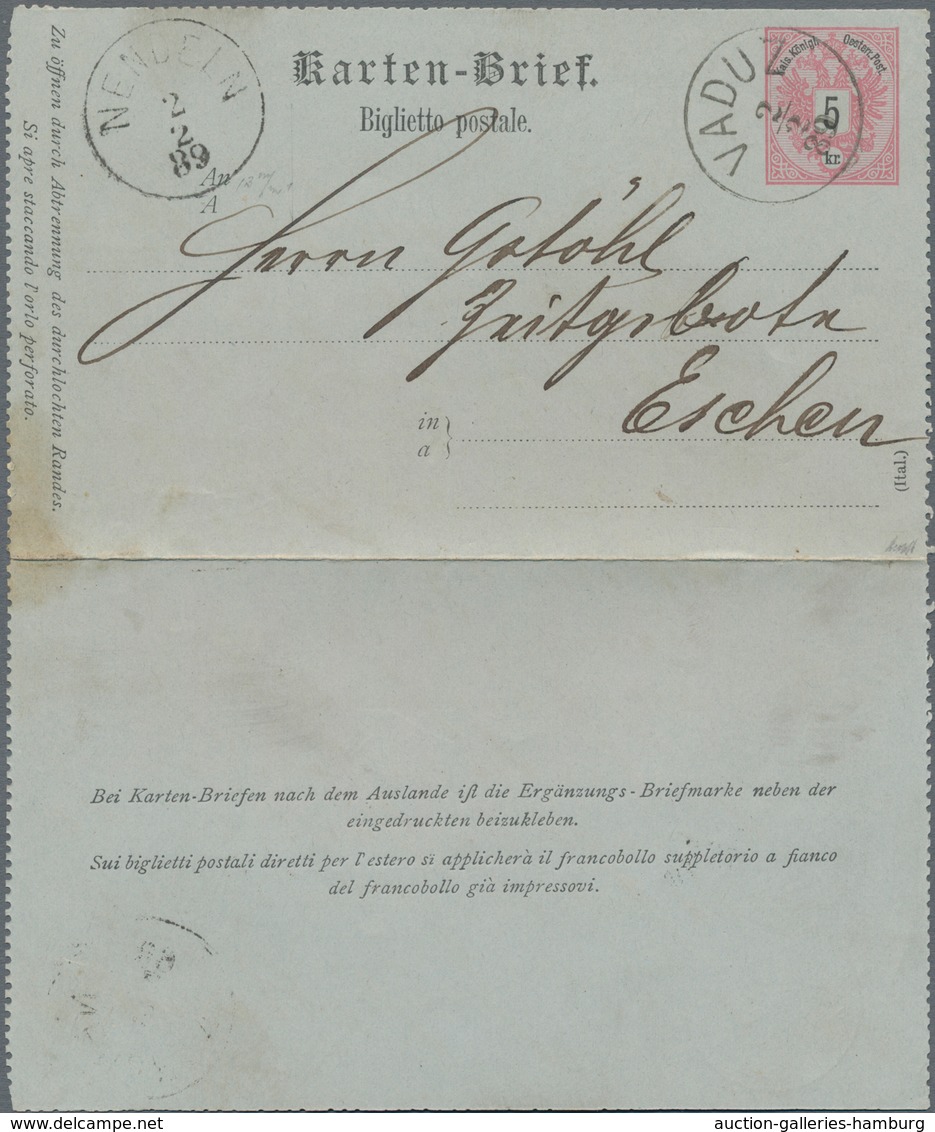 NENDELN
2
2
89
Karten-Brief.
Biglietto postale.
Kais. Königl. Oesterr. Post.
5
kr.
VADUZ
2/2/89
An
A
Herrn Gstöhl
Zeitgsbote
Eschen
in
a
(Ital.)
Zu öffnen durch Abtrennung des durchlochten Randes.
Si apre staccando l'orlo perforato.
Bei Karten-Briefen nach dem Auslande iſt die Ergänzungs-Briefmarke neben der
eingedruckten beizukleben.
Sui biglietti postali diretti per l'estero si applicherà il francobollo suppletorio a fianco
del francobollo già impressovi.
www.delcampe.net
auction-galleries-hamburg